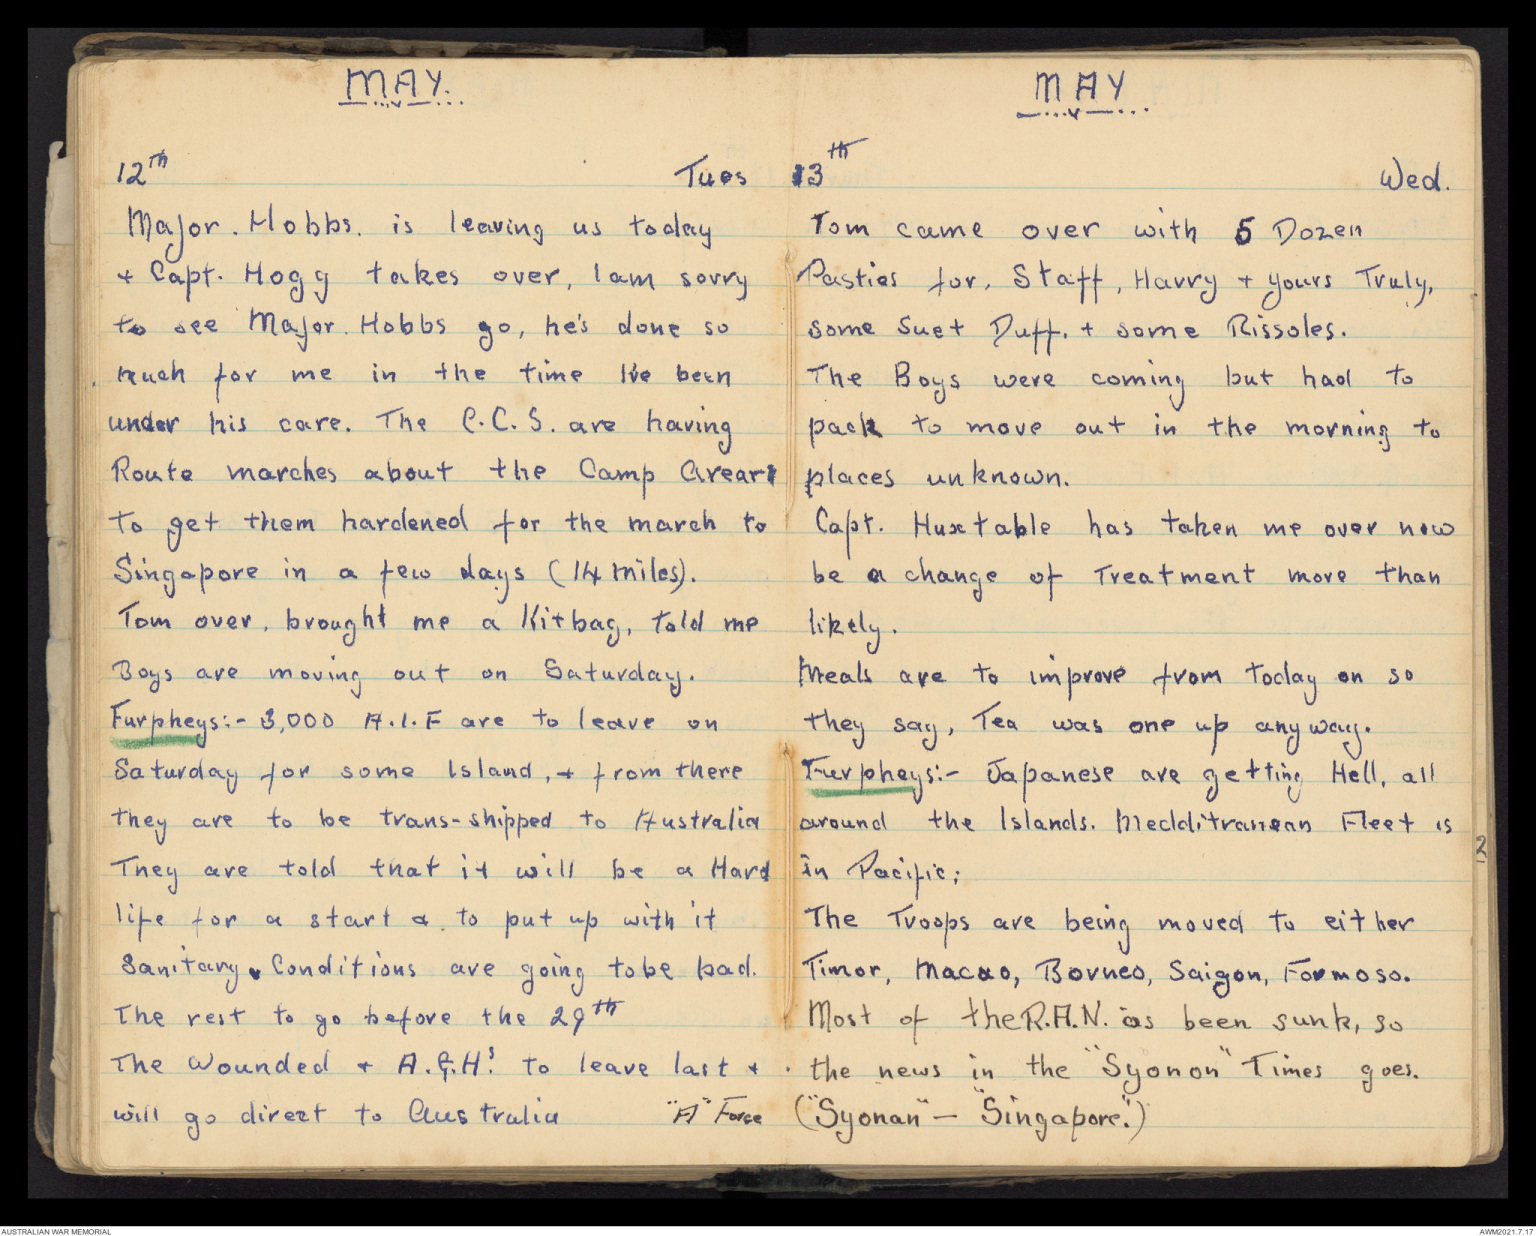 MAY.
12th Tues
Major. Hobbs. is leaving us today
+ Capt. Hogg takes over, I am sorry
to see Major. Hobbs go, he's done so
much for me in the time I've been
under his care. The C.C.S. are having
Route marches about the Camp Area
to get them hardened for the march to
Singapore in a few days (14 miles).
Tom over, brought me a Kitbag, told me
Boys are moving out on Saturday.
Furpheys:- 3,000 A.I.F are to leave on
Saturday for some Island, + from there
they are to be trans-shipped to Australia
They are told that it will be a Hard
life for a start & to put up with it
Sanitary Conditions are going to be bad.
The rest to go before the 29th
The Wounded + A.G.H's to leave last +
will go direct to Australia "A" Force
MAY
13th Wed.
Tom came over with 5 Dozen
Pasties for, Staff, Harry + yours Truly,
some Suet Duff. + some Rissoles.
The Boys were coming but had to
pack to move out in the morning to
places unknown.
Capt. Huxtable has taken me over now
be a change of Treatment more than
likely.
Meals are to improve from today on so
they say, Tea was one up anyway.
Furpheys:- Japanese are getting Hell, all
around the Islands. Medditranean Fleet is
in Pacific;
The Troops are being moved to either
Timor, Macao, Borneo, Saigon, Formoso.
Most of the R.A.N. as been sunk, so
the news in the "Syonon" Times goes.
("Syonan" - "Singapore".)
2
AUSTRALIAN WAR MEMORIAL
AWM2021.7.17